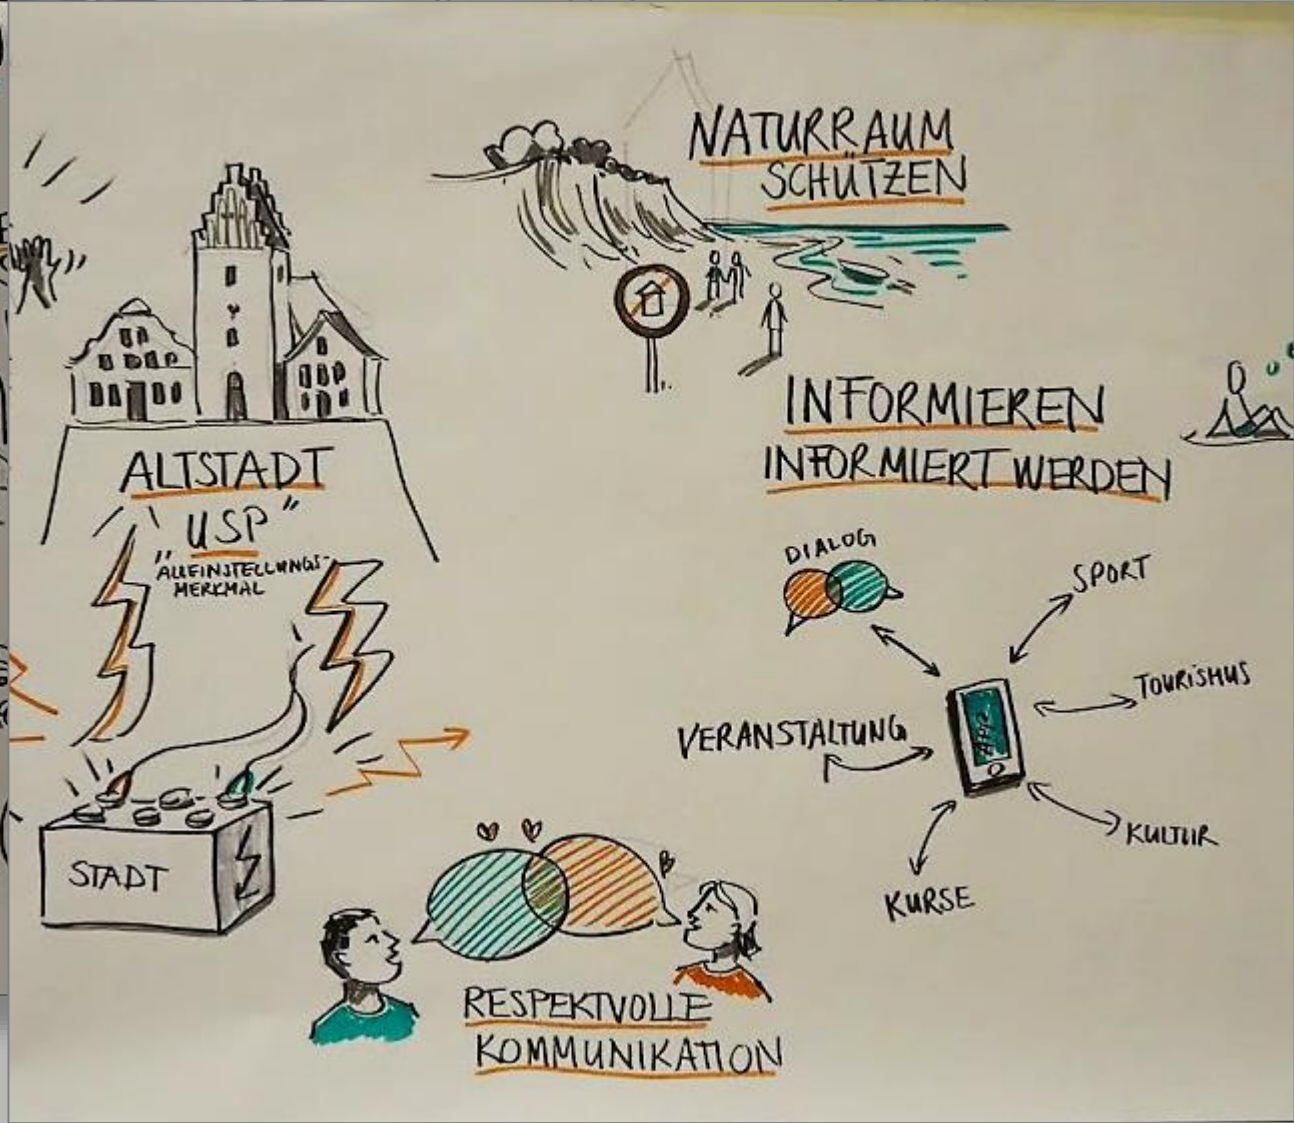 NATURRAUM
SCHÜTZEN
ALTSTADT
"USP"
ALLEINSTELLUNGS-
MERKMAL
STADT
INFORMIEREN
INFORMIERT WERDEN
DIALOG
SPORT
TOURISMUS
VERANSTALTUNG
App
KULTUR
KURSE
RESPEKTVOLLE
KOMMUNIKATION